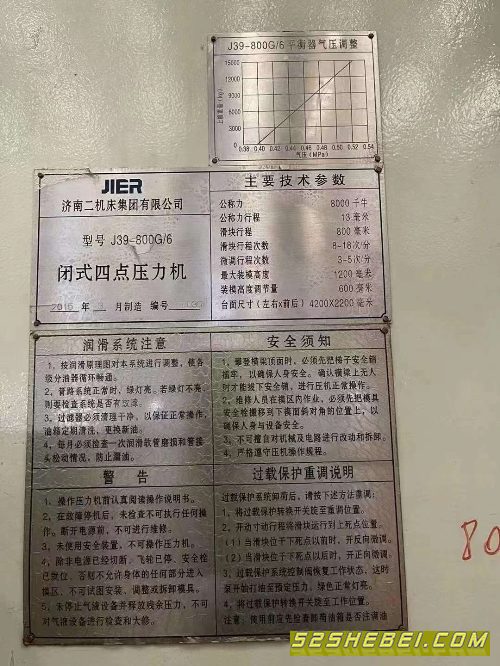 J39-800G/6平衡器气压调整
上模重量(kg)
15000
12000
9000
6000
3000
0.38 0.40 0.42 0.44 0.46 0.48 0.50 0.52 0.54
气压(MPa)
JIER
济南二机床集团有限公司
型号 J39-800G/6
闭式四点压力机
2015 年 月制造 编号
主要技术参数
公称力 8000 千牛
公称力行程 13 毫米
滑块行程 800 毫米
滑块行程次数 8-18次/分
微调行程次数 3-5次/分
最大装模高度 1200 毫米
装模高度调节量 600 毫米
台面尺寸(左右x前后) 4200X2200 毫米
润滑系统注意
1、按润滑原理图对本系统进行调整，使各
级分油器循环畅通。
2、管路系统正常时，绿灯亮。若绿灯不亮
则要检查系统是否有故障。
3、过滤器必须清理干净，以保证正常操作，
油箱定期清洗、更换新油。
4、每月必须检查一次润滑软管磨损和管接
头松动情况，防止漏油。
安全须知
1、攀登横梁顶面时，必须先把梯子安全销
插牢，以确保人身安全。确认横梁上无人
时才能拔下安全销，进行压机正常操作。
2、维修人员在模区内作业，必须先把模具
安全栓搬移到下模面斜对角的位置上，以
确保人身与设备安全。
3、不可擅自对机械及电路进行改动和拆卸。
4、严格遵守压机操作规程。
警告
1、操作压力机前认真阅读操作说明书。
2、在故障停机后，未检查不可执行任何操
作。断开电源前，不可进行维修。
3、未使用安全装置，不可操作压力机。
4、除非电源已经切断，飞轮已停、安全栓
已就位，否则不允许身体的任何部分进入
模区、不可试图安装、调整或拆卸模具。
5、未停止气液设备并释放残余压力，不可
对气液设备进行检查和大修。
过载保护重调说明
过载保护系统卸荷后，请按下述方法重调：
1、将过载保护转换开关旋至重调位置。
2、开动寸动行程将滑块运行到上死点位置。
(1)当滑块位于下死点以前时，开反向微调。
(2)当滑块位于下死点以后时，开正向微调。
3、过载保护系统控制阀恢复工作状态，这时
泵开始打油至预定压力，绿色正常灯亮。
4、将过载保护转换开关旋至工作位置。
注意：使用前应先检查卸荷油箱是否注满油
80
52SHEBEI.COM